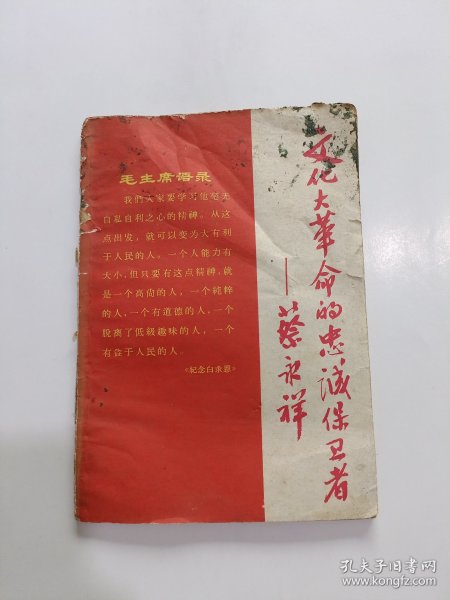 文化大革命的忠誠保卫者
——蔡永祥
毛主席语录
我們大家要学习他毫无
自私自利之心的精神。从这
点出发，就可以变为大有利
于人民的人。一个人能力有
大小，但只要有这点精神，就
是一个高尚的人，一个純粹
的人，一个有道德的人，一个
脫离了低級趣味的人，一个
有益于人民的人。
《紀念白求恩》
孔夫子旧书网
www.kongfz.com